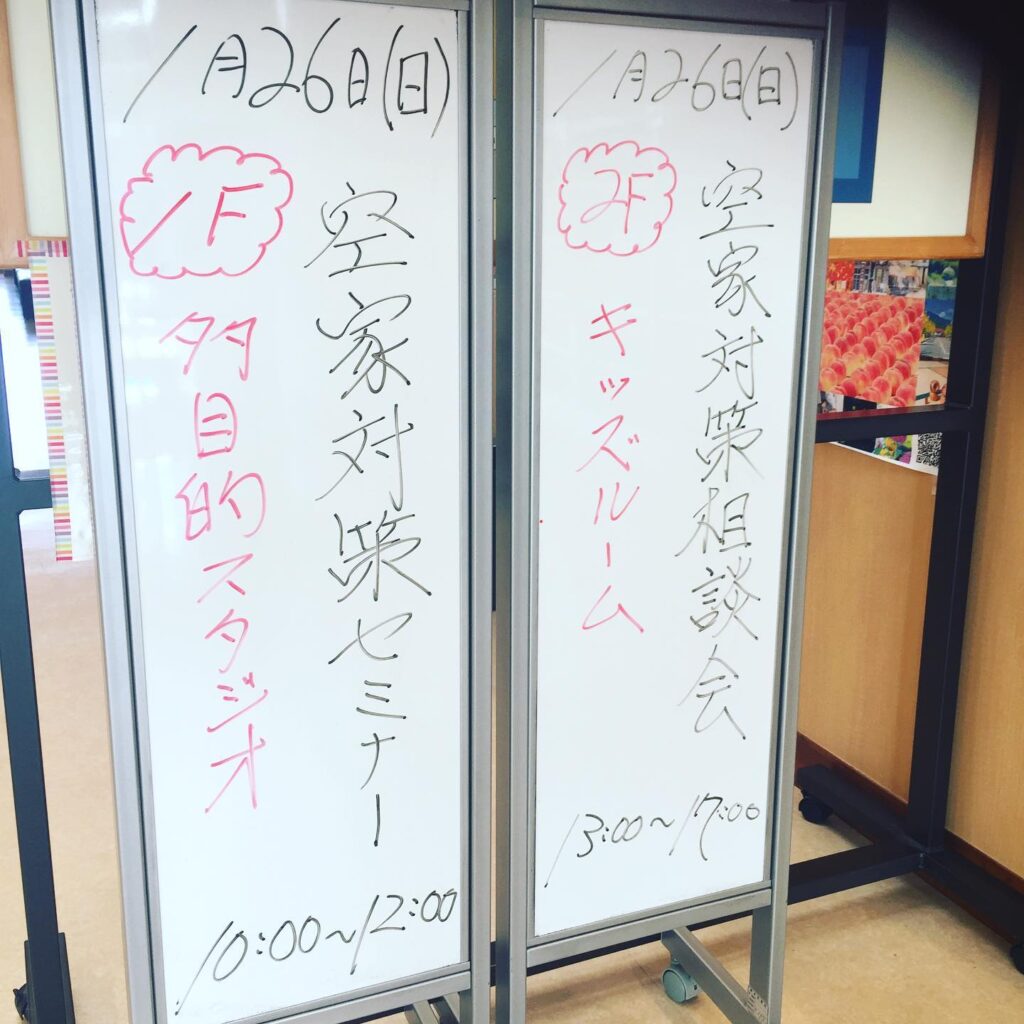 1月26日(日)
空家対策セミナー
1F
多目的スタジオ
10:00~12:00
1月26日(日)
空家対策相談会
2F
キッズルーム
13:00~17:00